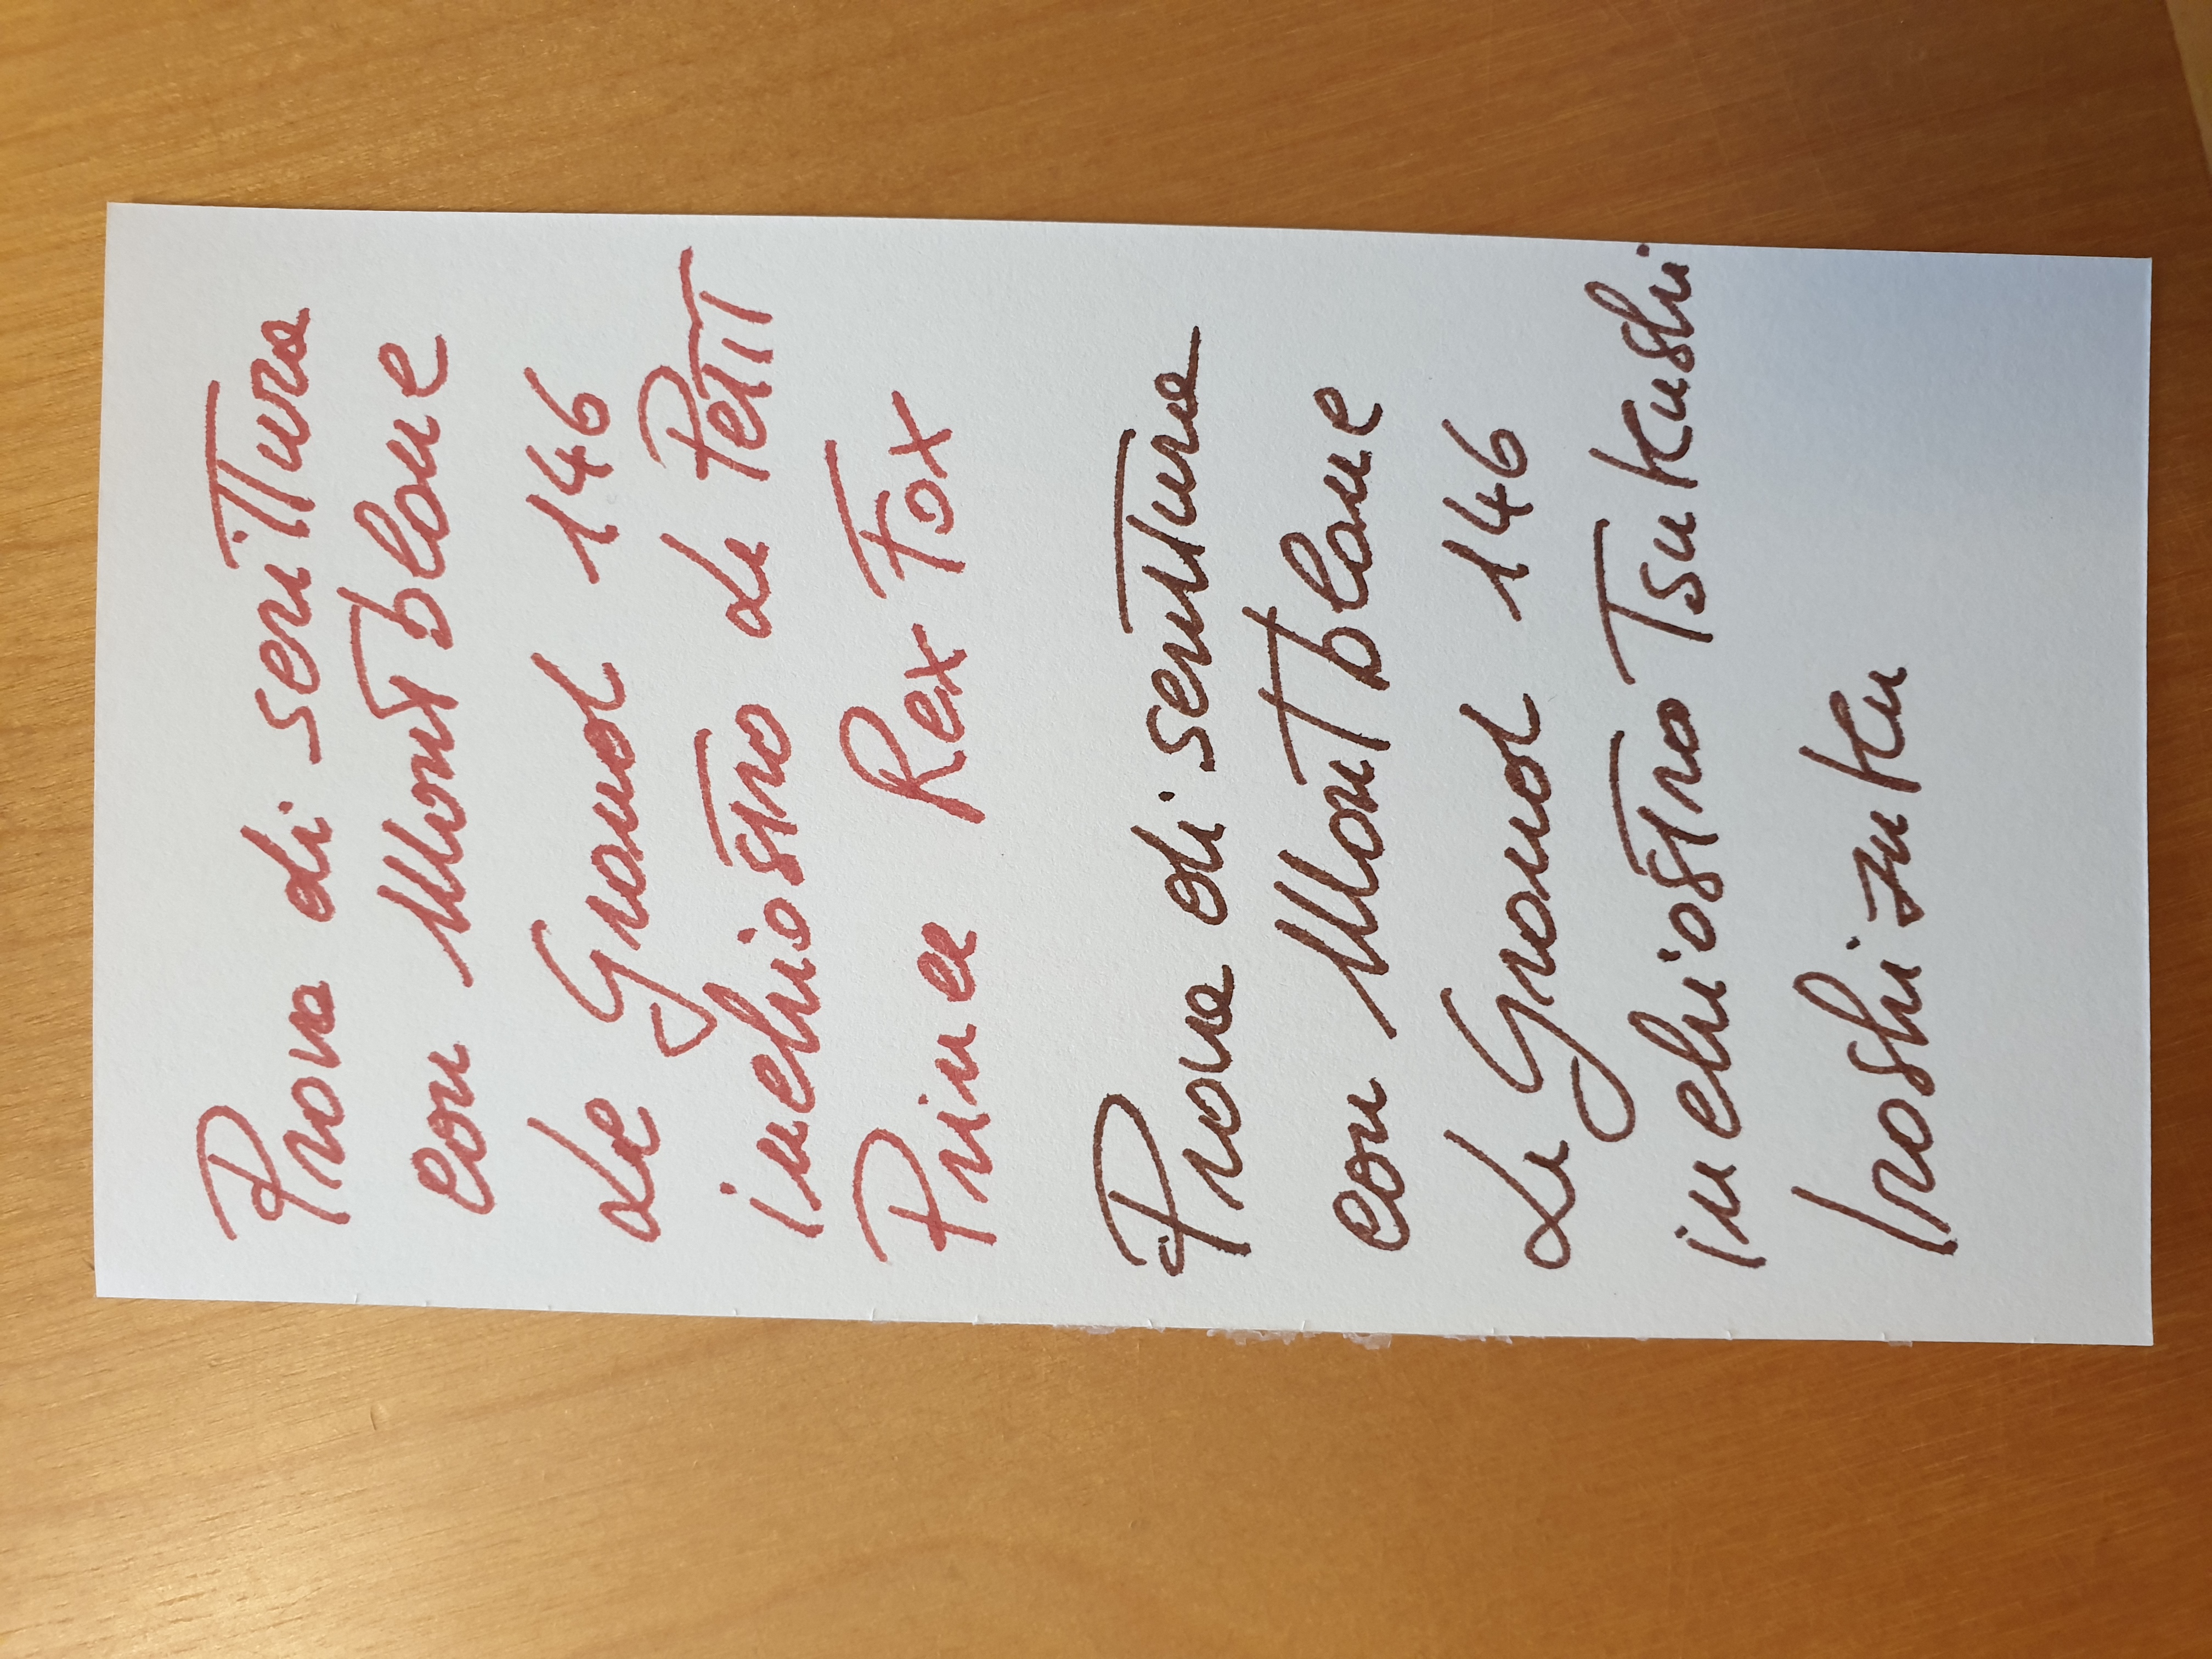 Prova di scrittura
con Mont blanc
Le Grand 146
inchiostro Le Petit
Prince Rex Fox
Prova di scrittura
con Mont blanc
Le Grand 146
inchiostro Tsukushi
Iroshizuku